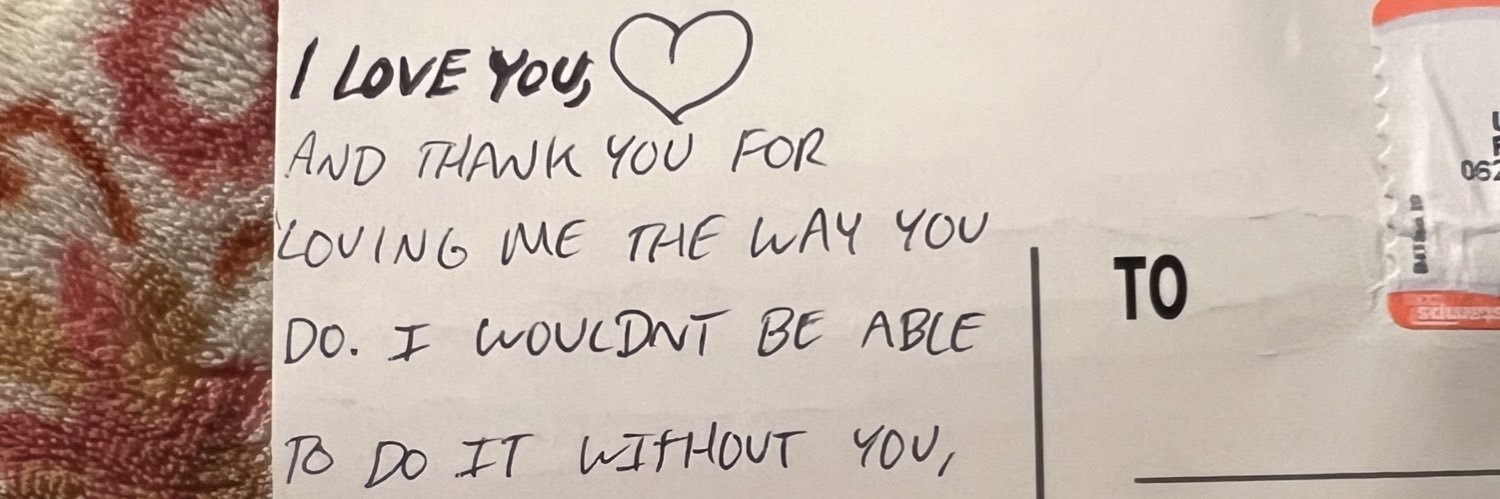 I LOVE YOU,
AND THANK YOU FOR
LOVING ME THE WAY YOU
DO. I WOULDNT BE ABLE
TO DO IT WITHOUT YOU,
TO
062